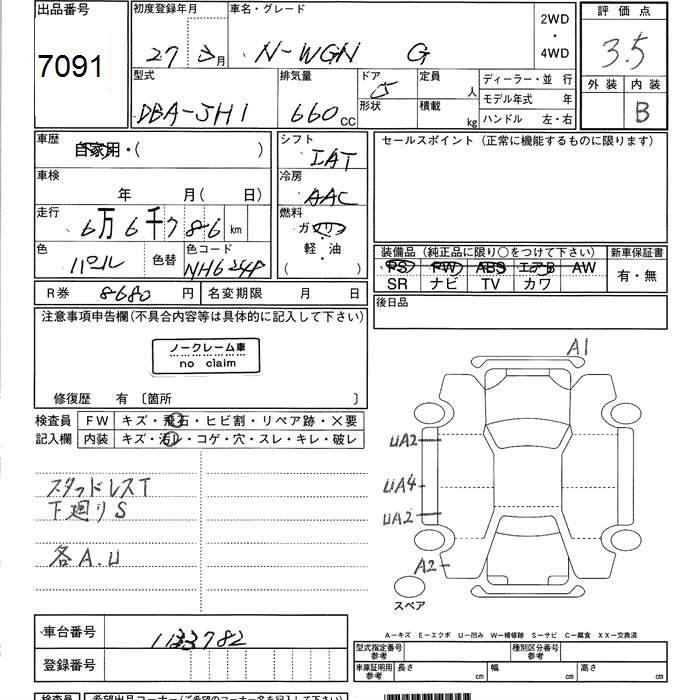 出品番号 初度登録年月 車名・グレード 2WD・4WD 評価点
7091 27 月 N-WGN G 3.5
型式 排気量 ドア 形状 定員 人 積載 kg ディーラー・並 行 外装 内装
DBA-JH1 660 CC 5 モデル年式 年 B
ハンドル 左・右
車歴 自家用・( ) シフト IAT セールスポイント (正常に機能するものに限ります)
車検 年 月( 日) 冷房 AAC
走行 6万6千786 km 燃料 ガソリン・軽・油 ( )
色 パール 色替 色コード NH624P
装備品 (純正品に限り○をつけて下さい) 新車保証書
PS PW ABS エアB AW 有・無
SR ナビ TV カワ
R券 8680 円 名変期限 月 日 後日品
注意事項申告欄(不具合内容等は具体的に記入して下さい)
ノークレーム車
no claim
修復歴 有 〔箇所 〕
検査員 FW キズ・飛石・ヒビ割・リペア跡・×要
記入欄 内装 キズ・汚レ・コゲ・穴・スレ・キレ・破レ
スタッドレスT
下廻りS
各A.U
A1
UA2
UA4
UA2
A2
スペア
車台番号 1133782
登録番号
A―キズ E―エクボ U―凹み W―補修跡 S―サビ C―腐食 XX―交換済
型式指定番号 参考 種別区分番号 参考
車庫証明用 参考 長さ cm 幅 cm 高さ cm
検査員 希望出品コーナー(ご希望のコーナー名を記入して下さい)